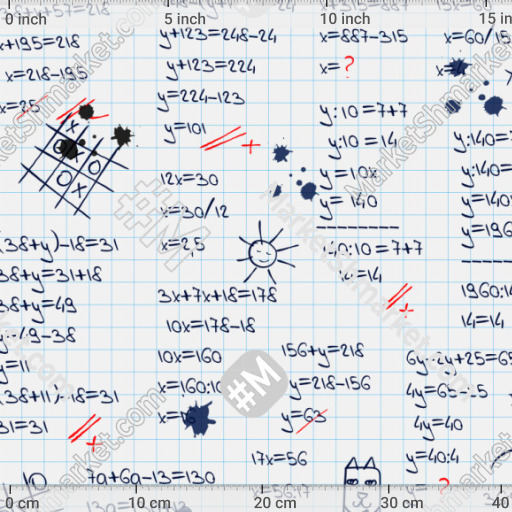 0 inch
5 inch
10 inch
15 in
x+195=218
x=218-195
x=25
(38+y)-18=31
38+y=31+18
38+y=49
y=49-38
y=11
(38+11)-18=31
31=31
10
7a+6a-13=130
y+123=248-24
y+123=224
y=224-123
y=101
12x=30
x=30/12
x=2,5
3x+7x+18=178
10x=178-18
10x=160
x=160:10
156+y=218
y=218-156
y=63
17x=56
x=887-315
x=?
y:10=7+7
y:10=14
y=10x
y=140
140:10=7+7
=14
x=60/15
y:140=
y:140=
y=140
y=196
1960:14
14=14
4y=65-25
4y=40
y=40:4
?
#M
MarketShmarket.com
0 cm
10 cm
20 cm
30 cm
40 cm